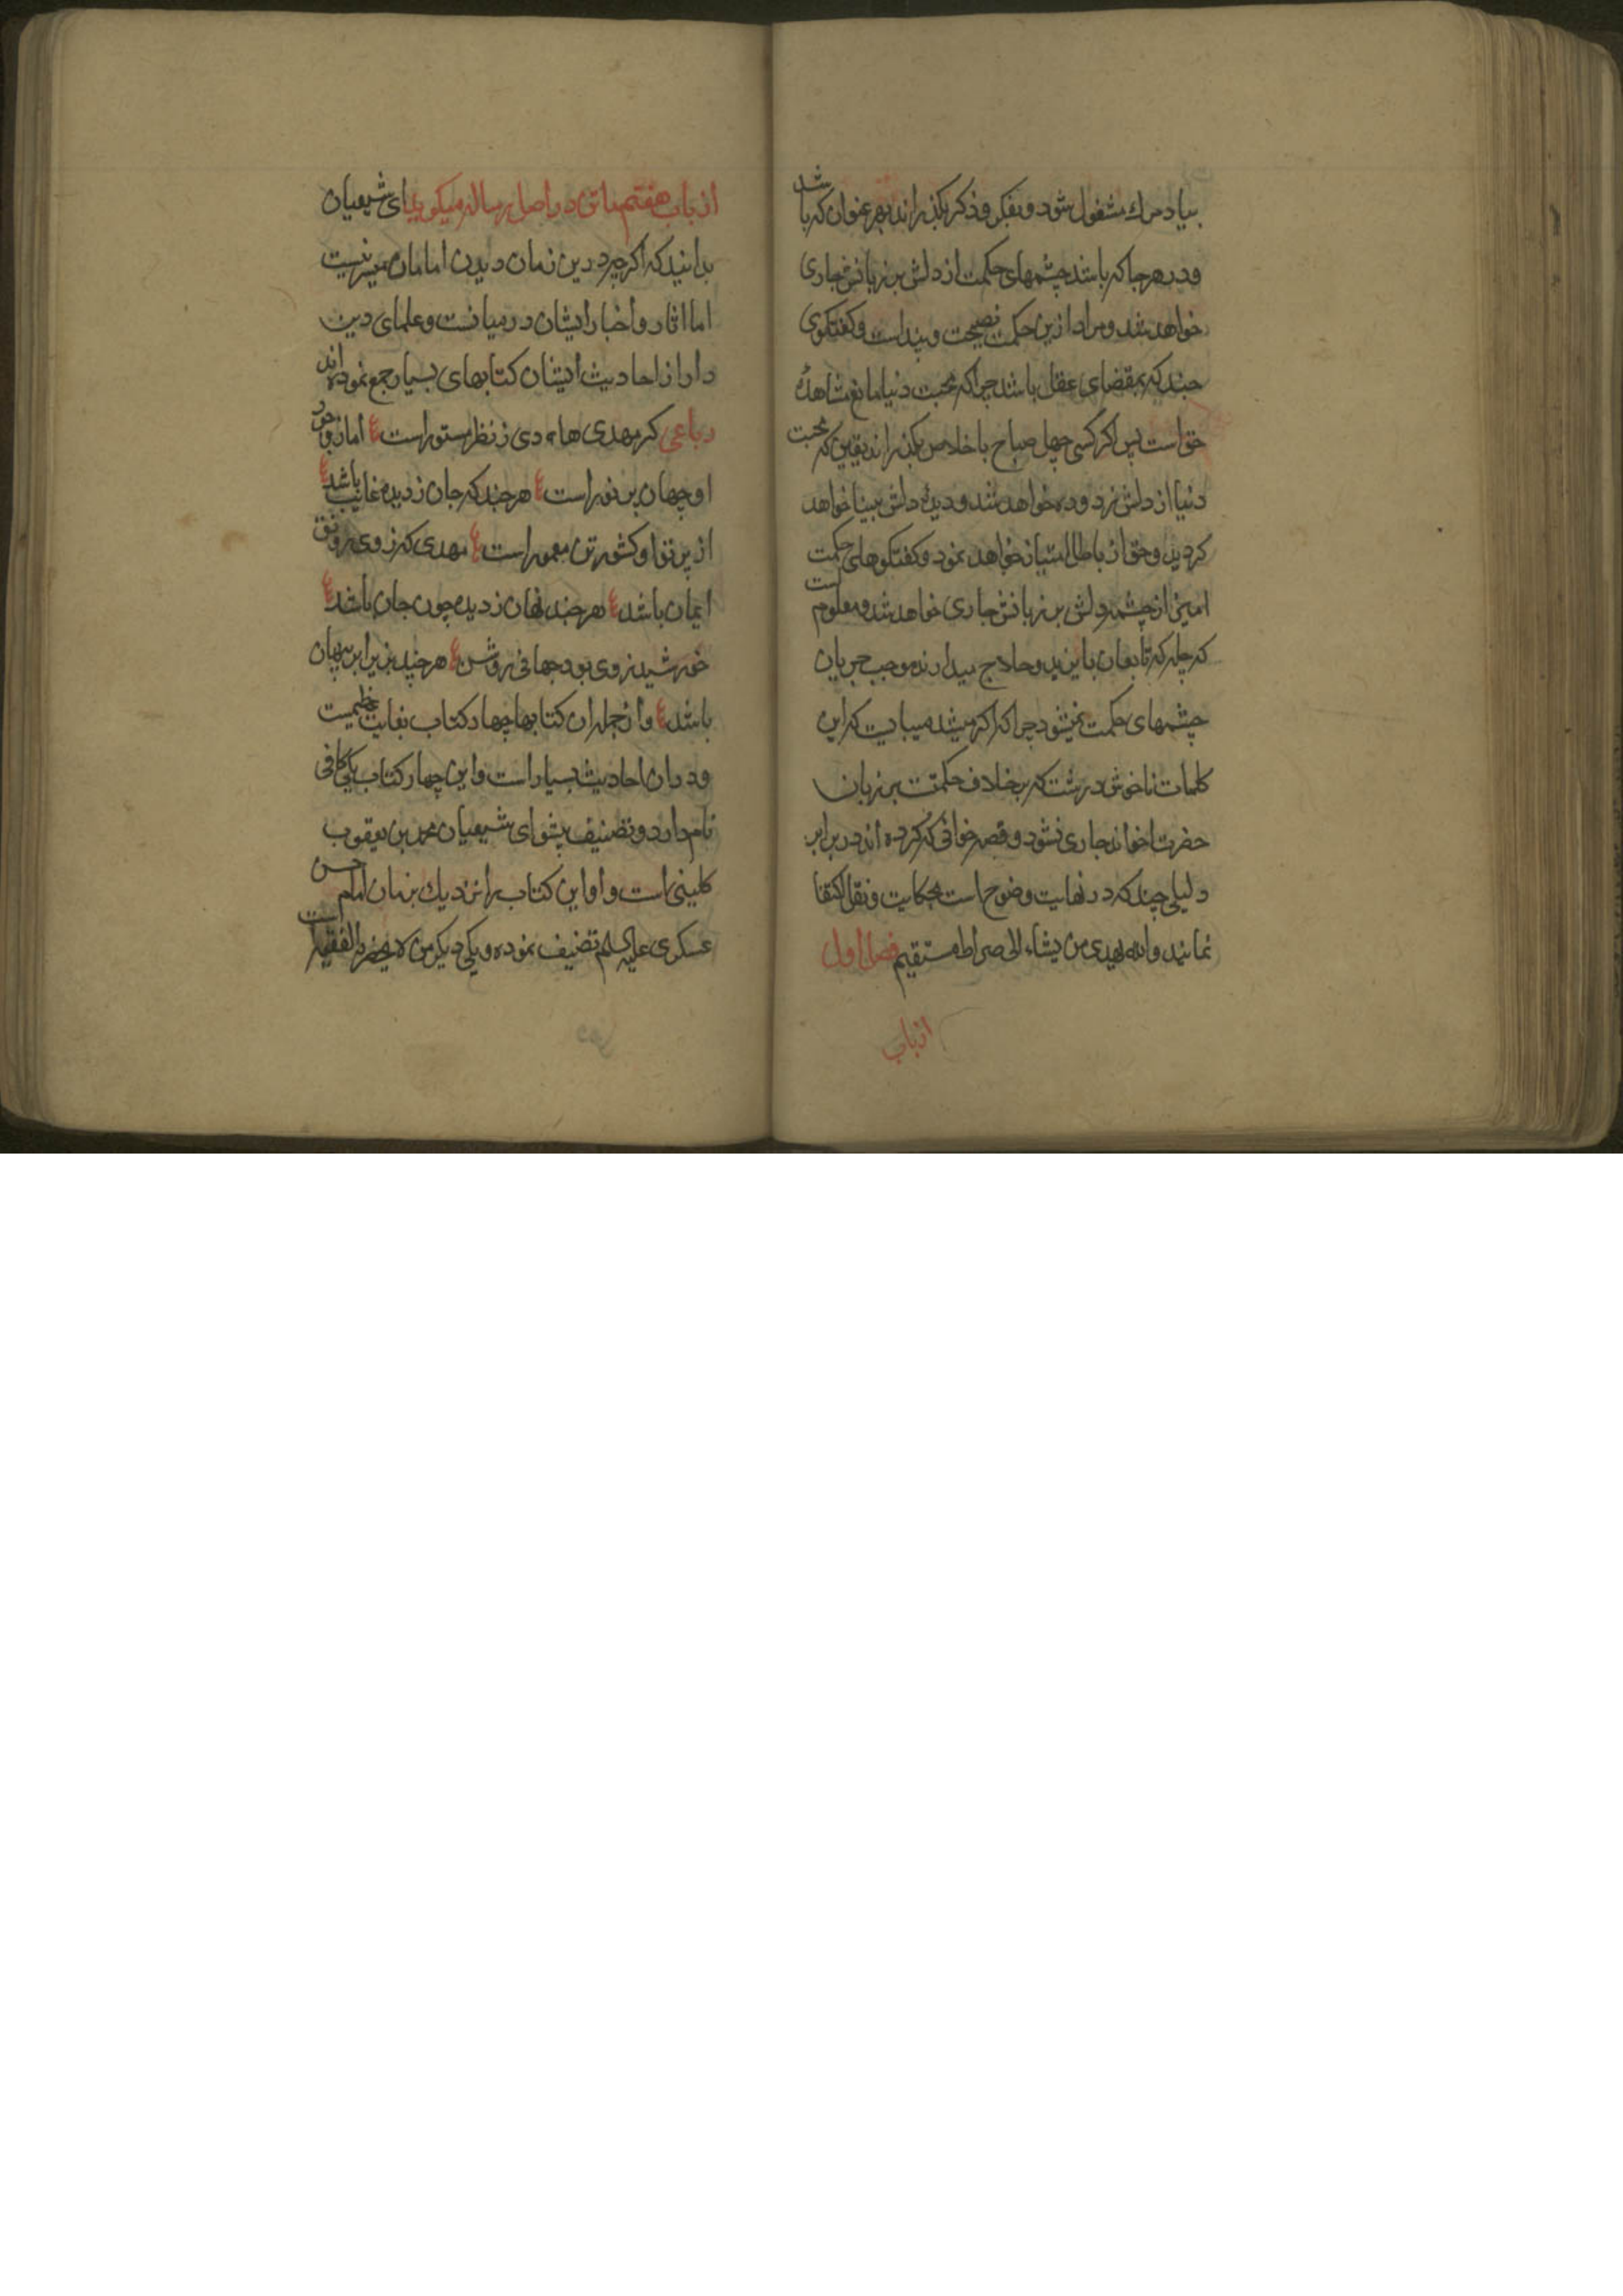 بیاد مرك مشغول شود و بفکر و ذکر بکذراند بهر عنوان که باشد
و در هر جا که باشد چشمهای حکمت از دلش بر زبانش جاری
خواهد شد و مراد ازین حکمت نصیحت و پنداست و کفتکوی
چند که بمقضای عقل باشد چرا که محبت دنیا مانع مشاهدهٔ
حق است پس اکر کسی چهل صباح باخلاص بکذراند یقین که محبت
دنیا از دلش زدوده خواهد شد و دیدهٔ دلش بینا خواهد
کردید و حق از باطل امتیاز خواهد نمود و کفتکوهای حکمت
امیزی از چشمه دلش بر زبانش جاری خواهد شد و معلوم است
که چله که تابعان بایزید و حلاج میدارند موجب جریان
چشمهای حکمت نمیشود چرا که اکر میشد میبایست که این
کلمات ناخوش درشت که بر خلاف حکمتست بر زبان
حضرت اخواند جاری نشود و قصه خوانی که کرده اند در برابر
دلیلی چند که در نهایت وضوح است بحکایت و نقل اکتفا
نمایند والله یهدی من یشاء الی صراط مستقیم فصل اول
از باب
از باب هفتم ملتق در اصل رساله میکوید ای شیعیان
بدانید که اکرچه درین زمان دیدن امامان میسر نیست
اما اثار و اخبار ایشان در میانست و علمای دین
دار از احادیث ایشان کتابهای بسیار جمع نموده اند
رباعی کر مهدی هادی ز نظر مستور است اما ز وجود
او جهان پر نور است هر چند که جان ز دیده غایب باشد
از پرتو او کشور تن معمور است مهدی که ز وی رونق
ایمان باشد هر چند نهان ز دیده چون جان باشد
خورشید ز وی بود جهانی روشن هر چند بزیر ابر پنهان
باشد و از جمله ان کتابها چهار کتاب بغایت عظیمیست
و در ان احادیث بسیار است و این چهار کتاب یکی کافی
نام دارد و تصنیف پیشوای شیعیان محمد بن یعقوب
کلینی است و او این کتاب را نزدیك بزمان امام حسن
عسکری علیه السلم تصنیف نموده و یکی دیکر من لا یحضره الفقیه است